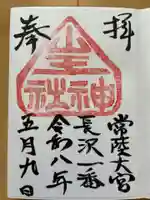 奉拝
山王神社
常陸大宮
長沢一番
令和八年
五月九日